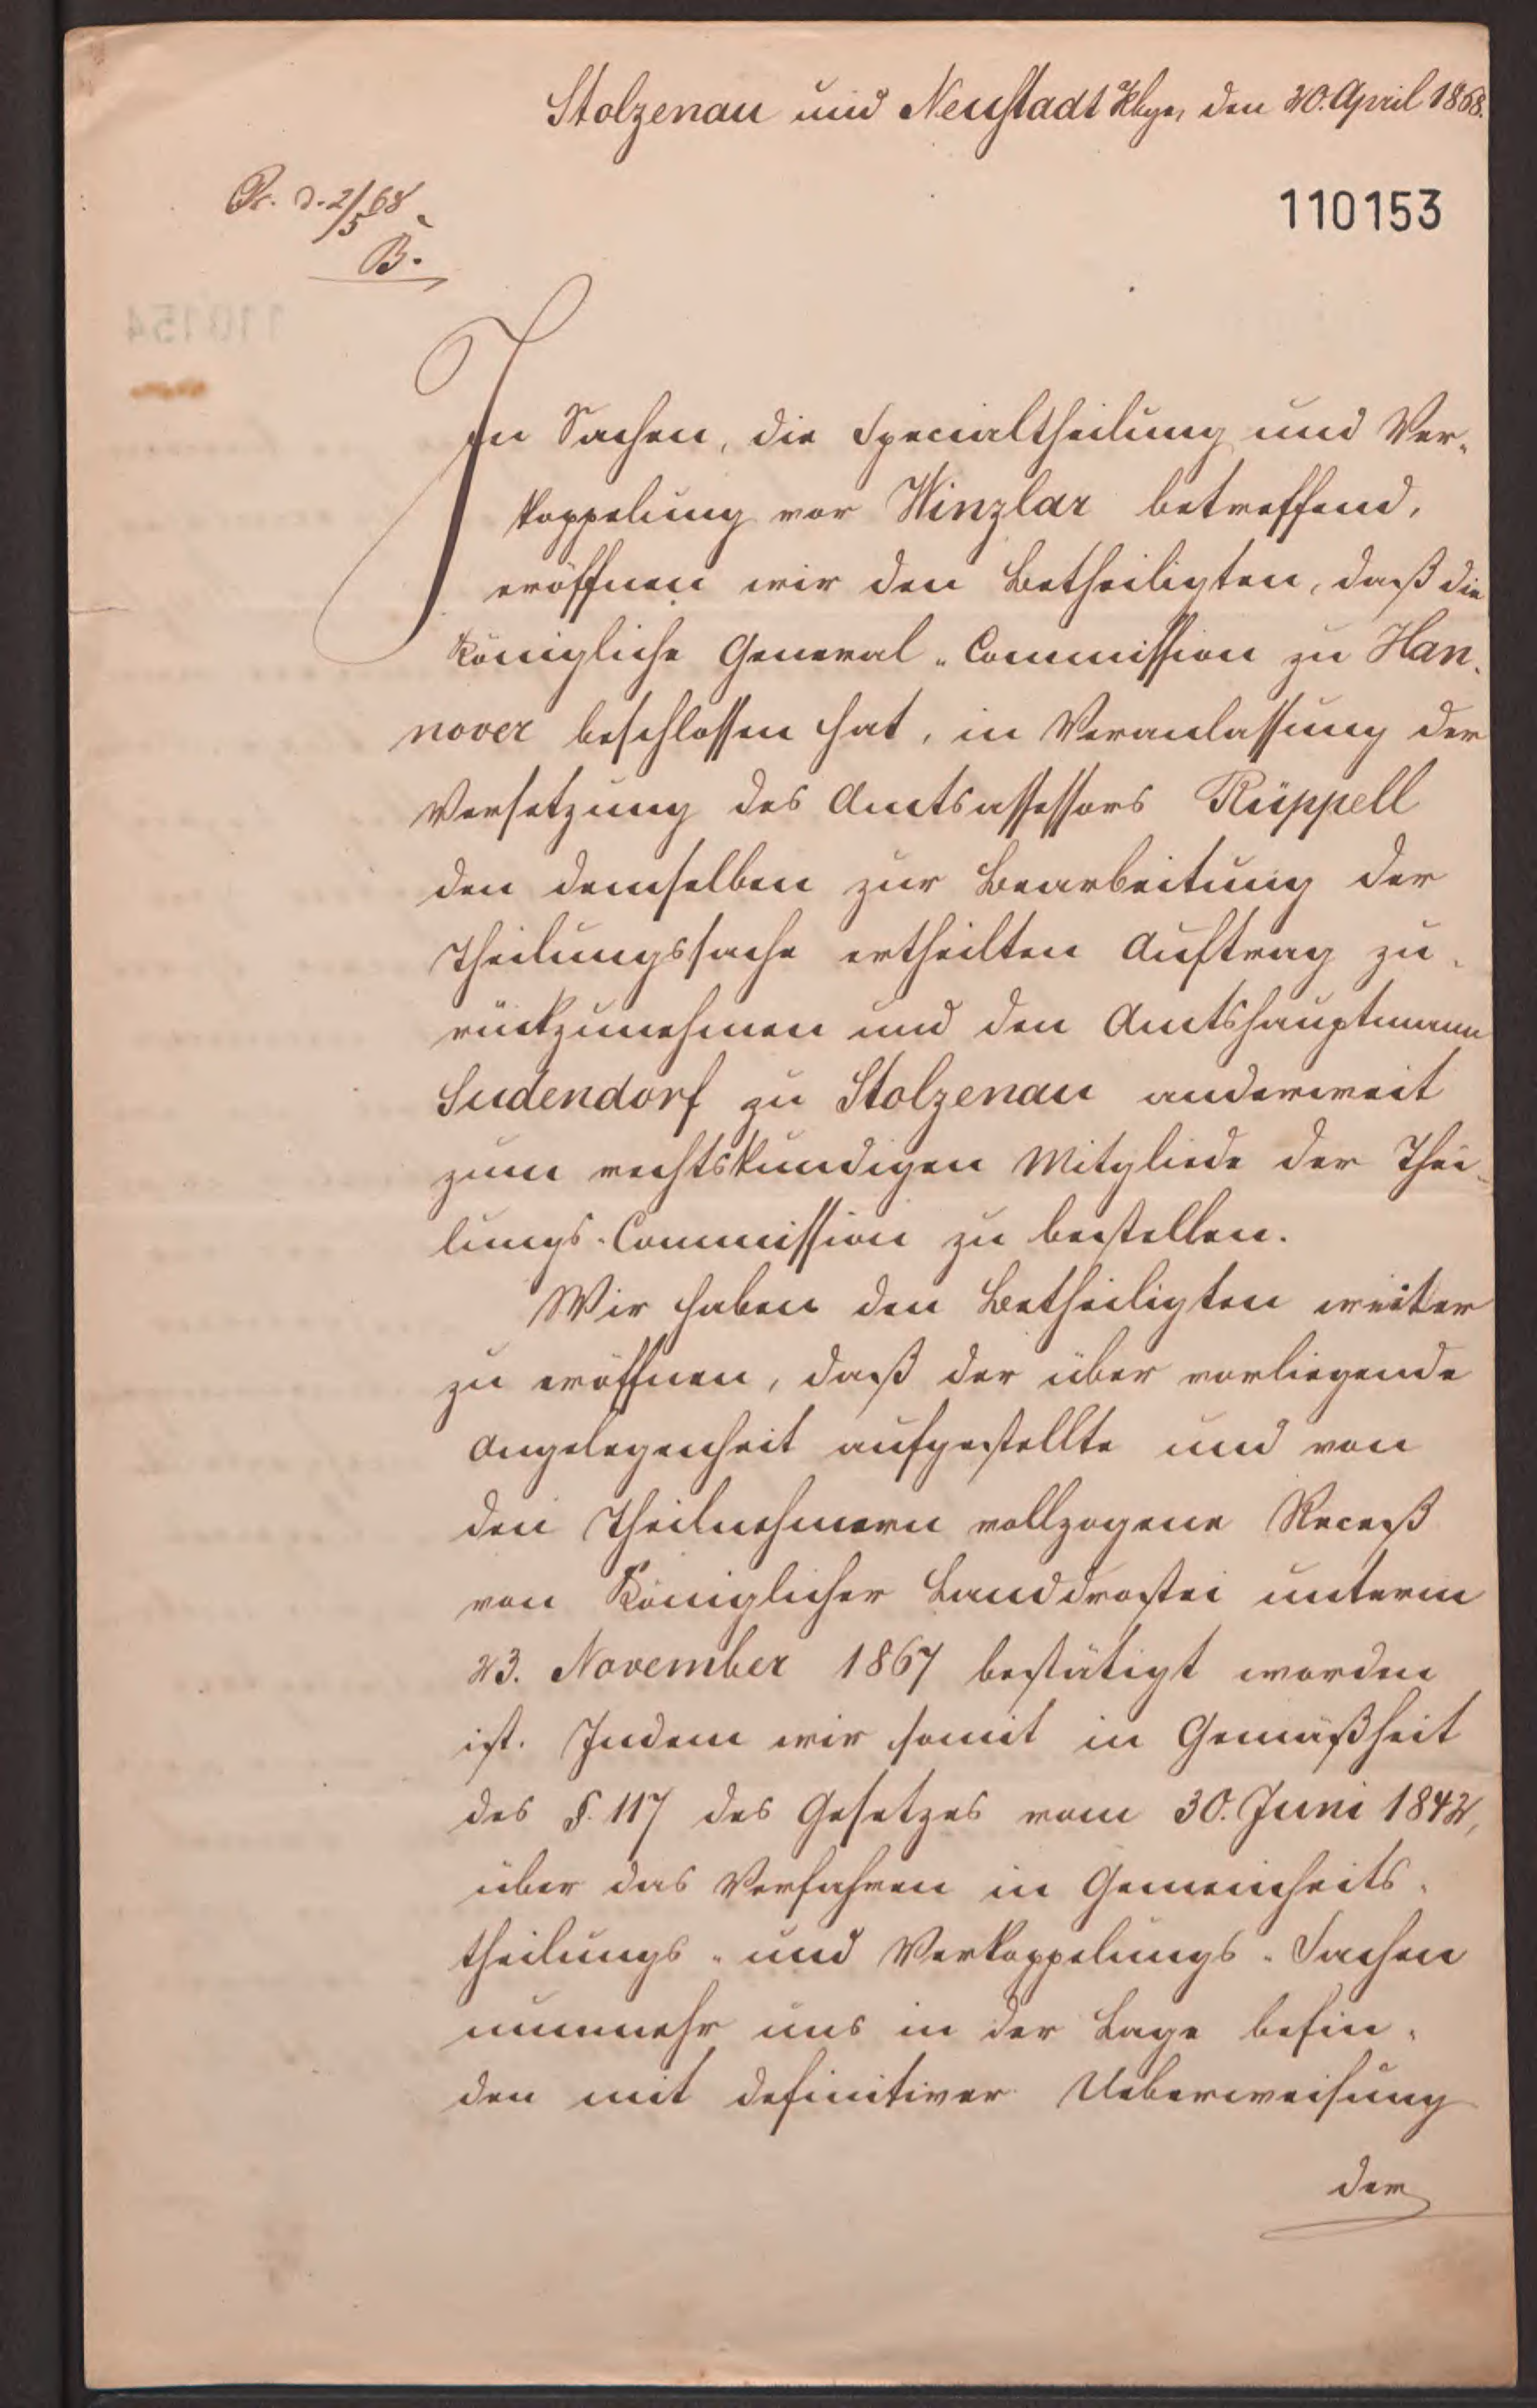 Stolzenau und Neustadt Rbge, den 20. April 1868.
Pr. d. 2/5 68.
B.
110153
In Sachen, die Specialtheilung und Ver-
koppelung vor Winzlar betreffend,
eröffnen wir den Betheiligten, daß die
Königliche General-Commission zu Han-
nover beschlossen hat, in Veranlassung der
Versetzung des Amtsassessors Rüppell
den demselben zur Bearbeitung der
Theilungssache ertheilten Auftrag zu-
rückzunehmen und den Amtshauptmann
Sudendorf zu Stolzenau anderweit
zum rechtskundigen Mitgliede der Thei-
lungs-Commission zu bestellen.
Wir haben den Betheiligten weiter
zu eröffnen, daß der über vorliegende
Angelegenheit aufgestellte und von
den Theilnehmern vollzogene Receß
von Königlicher Landdrostei unterm
23. November 1867 bestätigt worden
ist. Indem wir somit in Gemäßheit
des §. 117 des Gesetzes vom 30. Juni 1842,
über das Verfahren in Gemeinheits-
theilungs- und Verkoppelungs-Sachen
nunmehr uns in der Lage befin-
den mit definitiver Ueberweisung
der